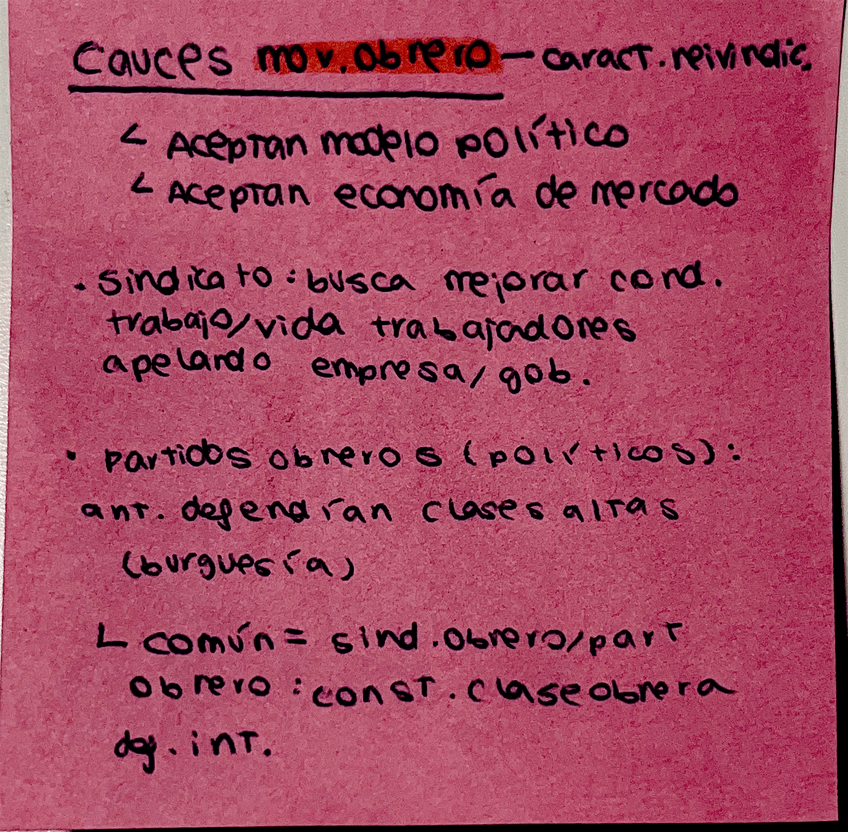 Cauces mov. obrero – caract. reivindic.
└ Aceptan modelo político
└ Aceptan economía de mercado
· sindicato : busca mejorar cond.
trabajo/vida trabajadores
apelando empresa/gob.
· partidos obreros (políticos) :
ant. defendían clases altas
(burguesía)
└ común = sind. obrero/part
obrero : const. clase obrera
def. int.